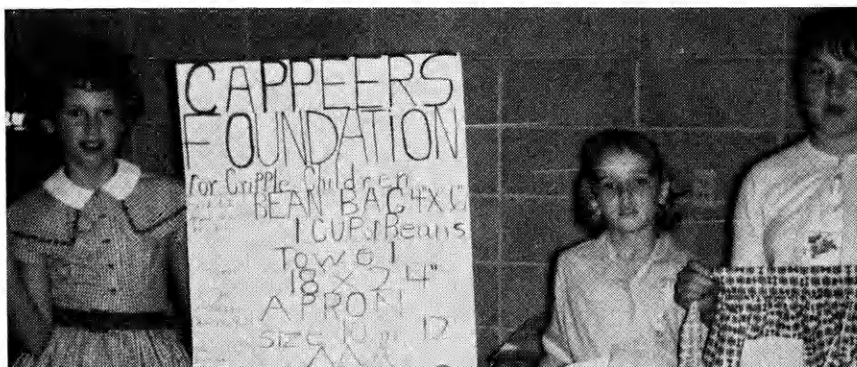 CAPPEERS
FOUNDATION
for Cripple Children
BEAN BAG 4"X6"
1 CUP Beans
Towel
18 X 24"
APRON
size 10 or 12